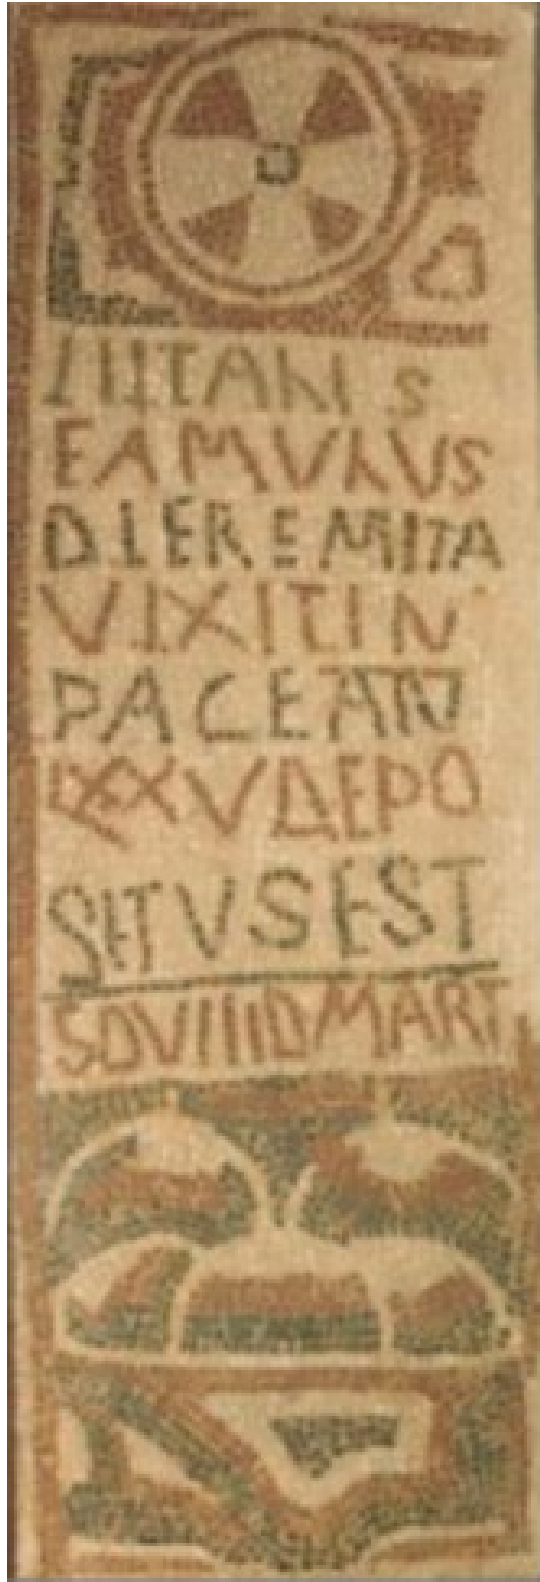 FAMULUS
DI EREMITA
VIXIT IN
PACE AN
LXXV DEPO
SITVS EST
SDVIIIIDMART